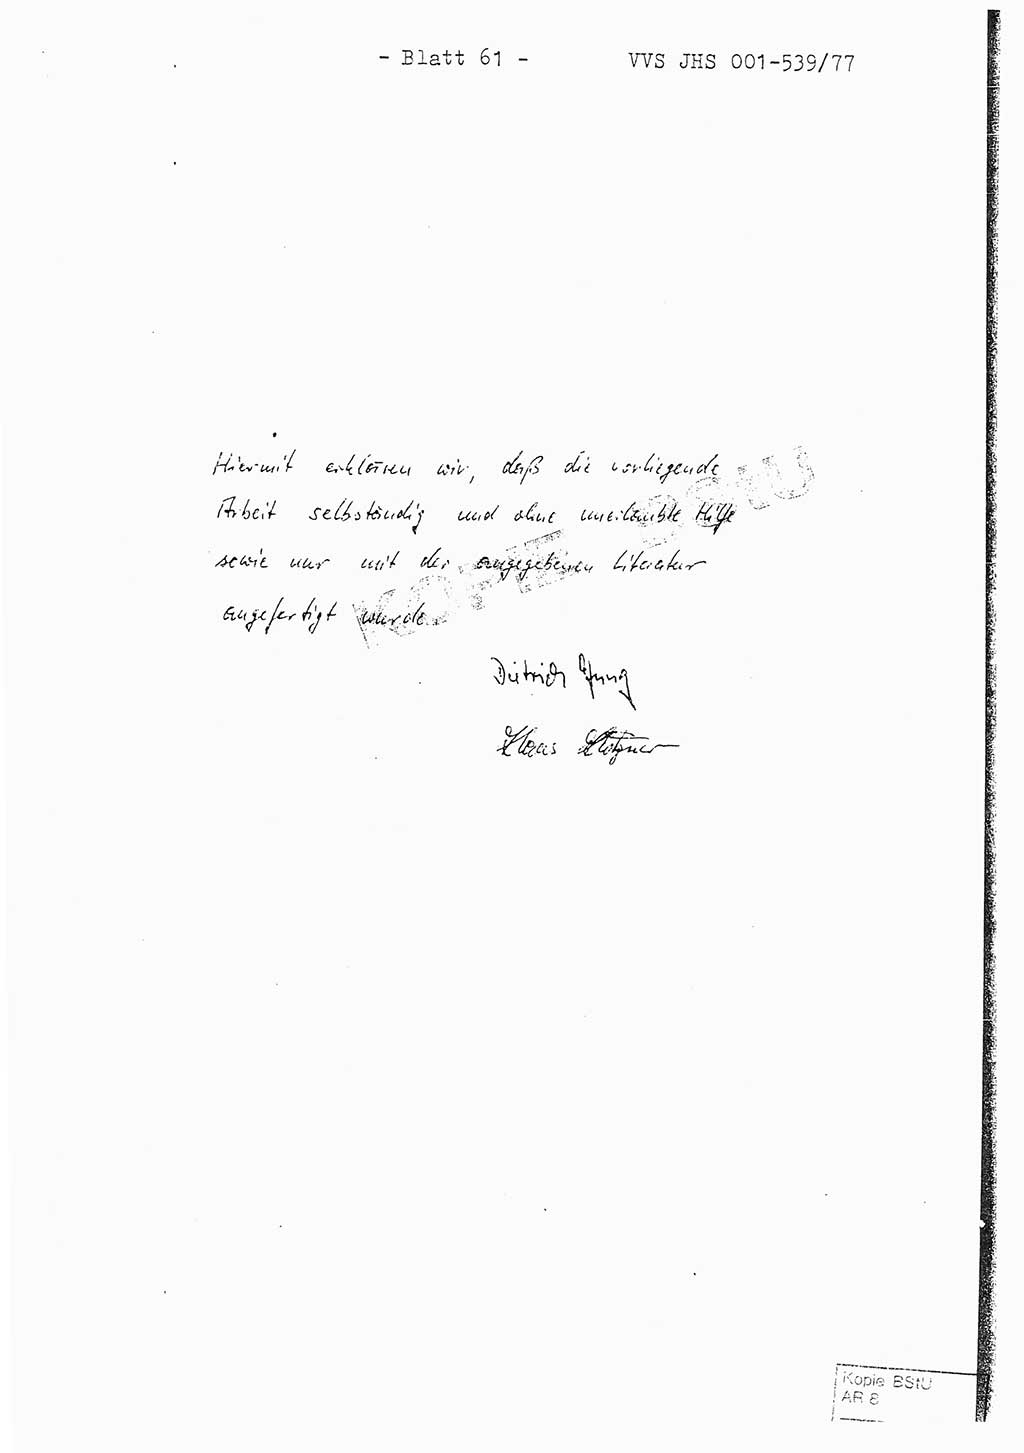 - Blatt 61 - VVS JHS 001-539/77
Hiermit erklären wir, daß die vorliegende
Arbeit selbständig und ohne unerlaubte Hilfe
sowie nur mit der angegebenen Literatur
angefertigt wurde.
KOPIE BStU
Dietrich Jung
Klaus
Kopie BStU
AR 8